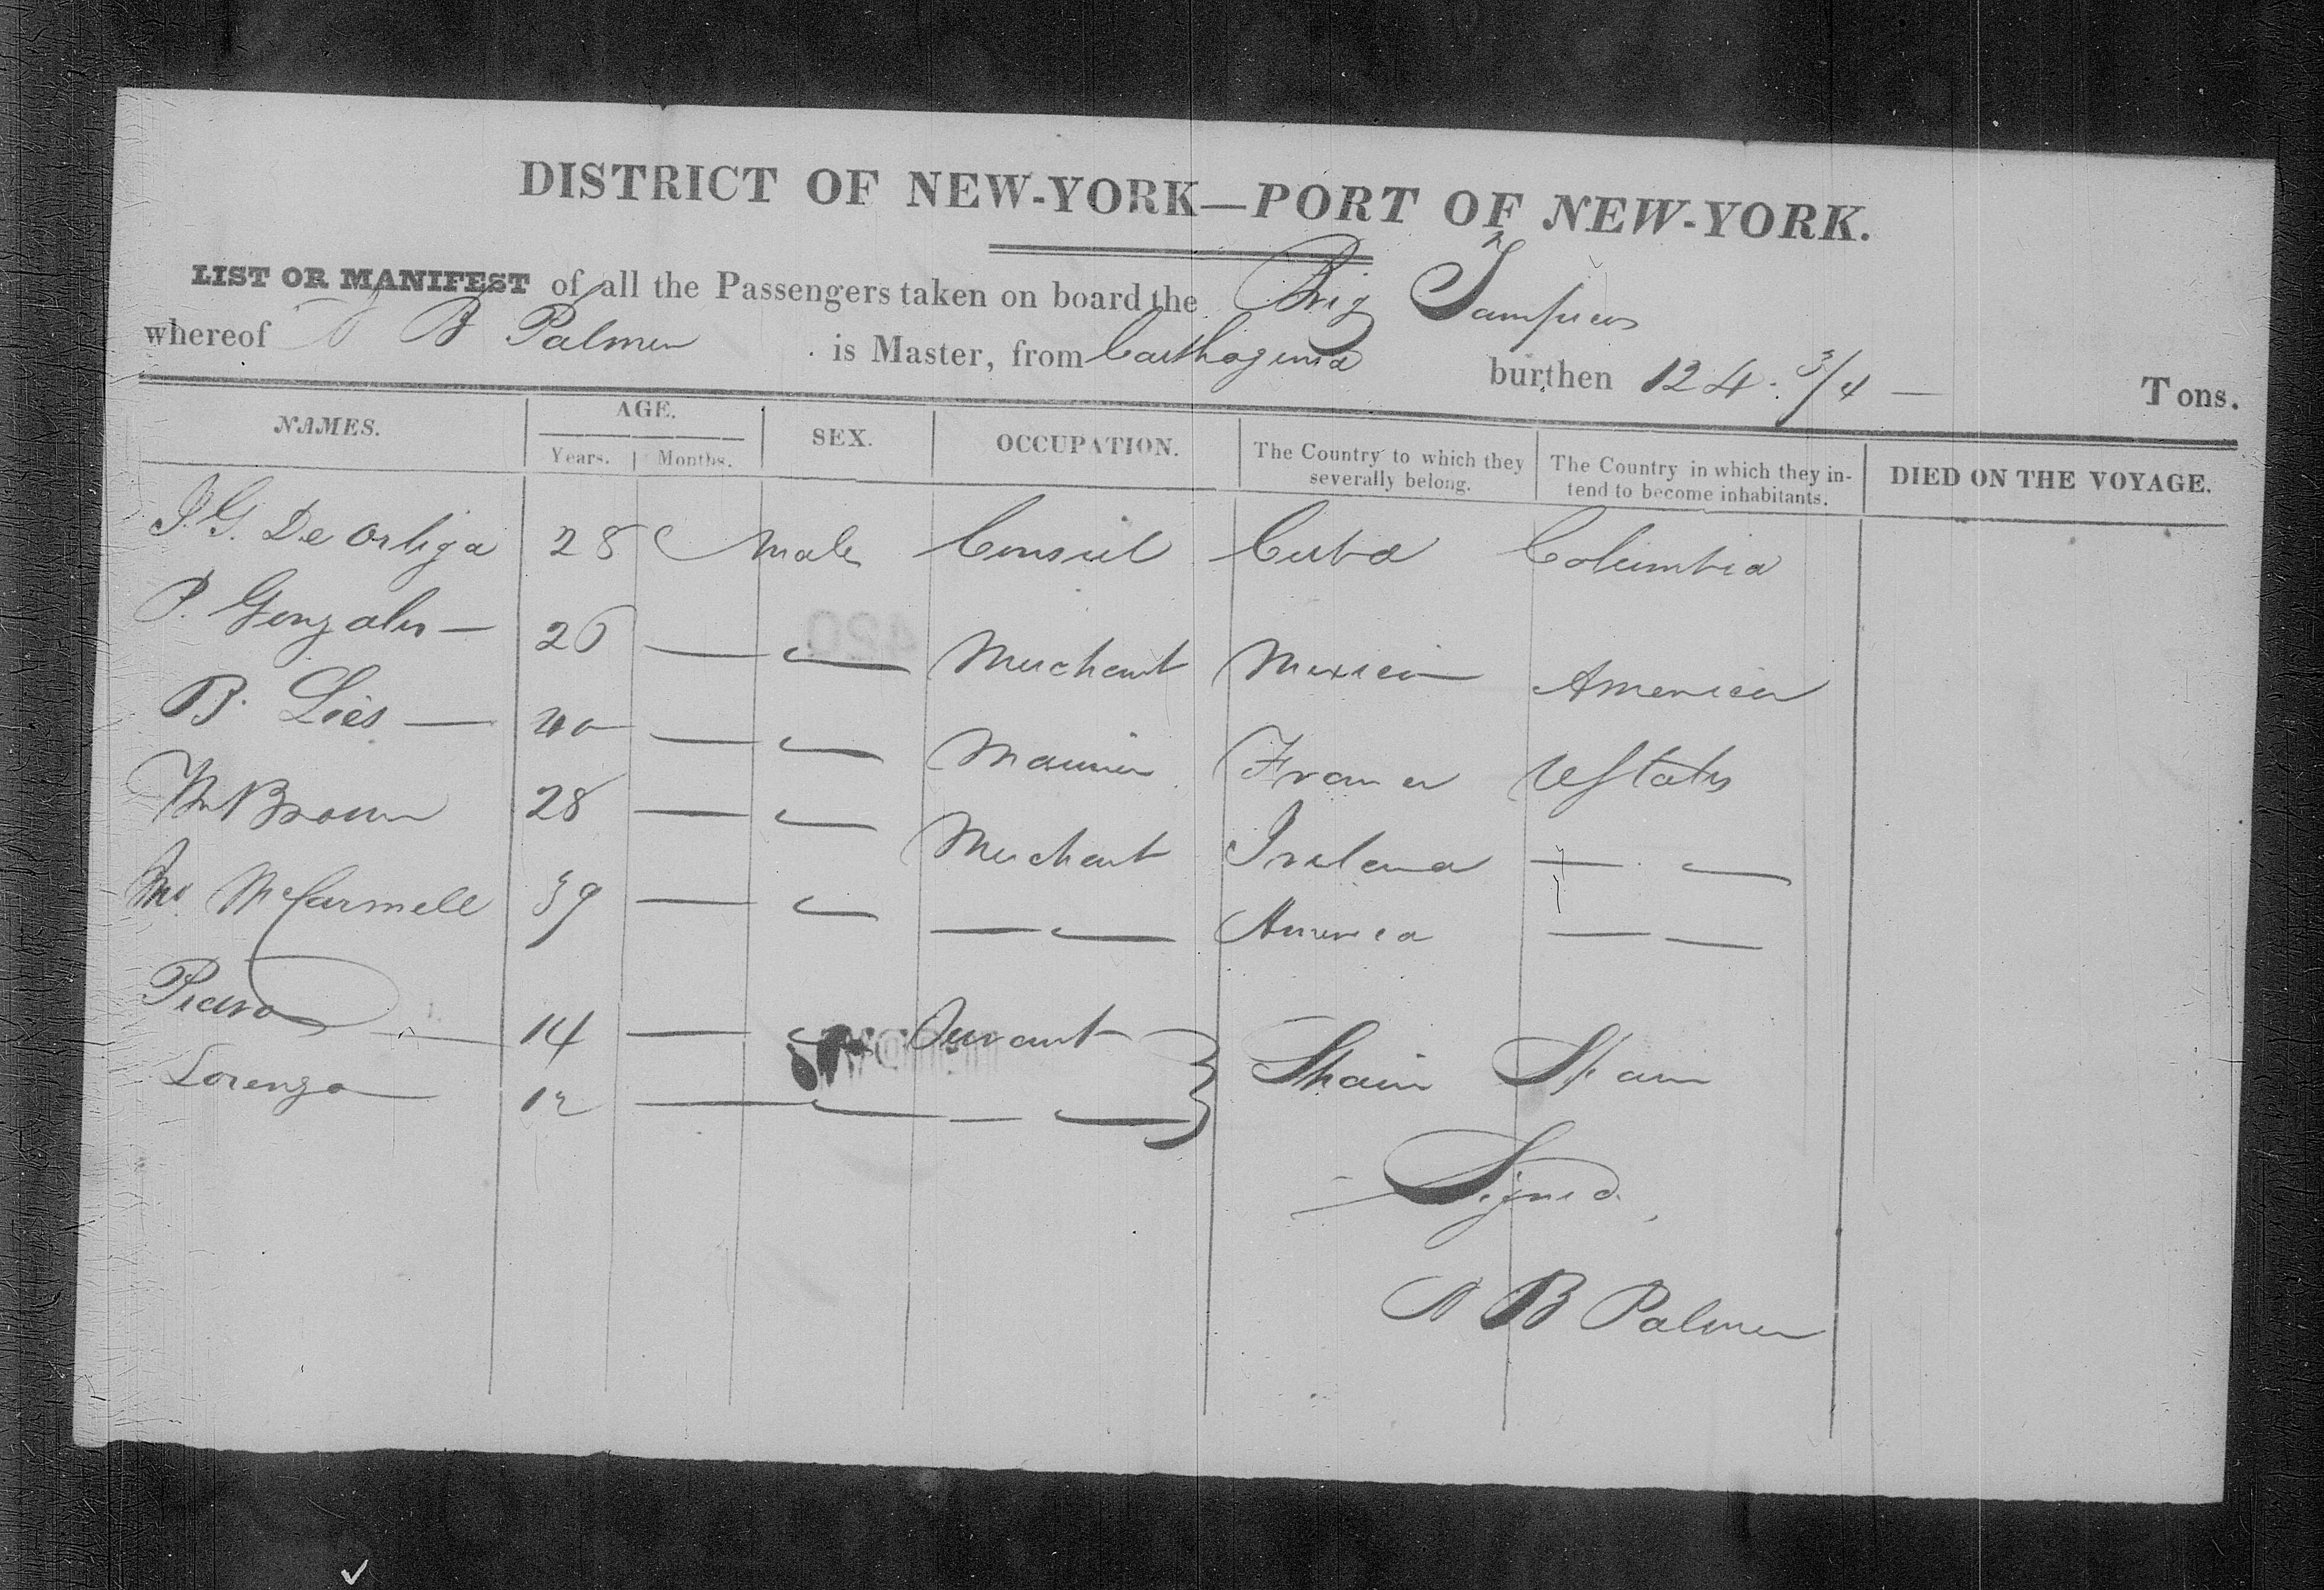 DISTRICT OF NEW-YORK—PORT OF NEW-YORK.
LIST OR MANIFEST of all the Passengers taken on board the Brig Tampico
whereof N B Palmer is Master, from Carthagena burthen 124. 3/4 — Tons.
NAMES. AGE. SEX. OCCUPATION. The Country to which they severally belong. The Country in which they intend to become inhabitants. DIED ON THE VOYAGE.
Years. Months.
J. G. De Ortega 28 Male Consul Cuba Columbia
P. Gonzales — 26 — — Merchant Mexico America
B. Lies — 40 — — Mariner France UStates
Wm Brown 28 — — Merchant Ireland — —
McCarmell 39 — — — — America — —
Piedro — 14 — — Servant Spain Spain
Lorenzo — 12 — — — —
Signed
N B Palmer
420